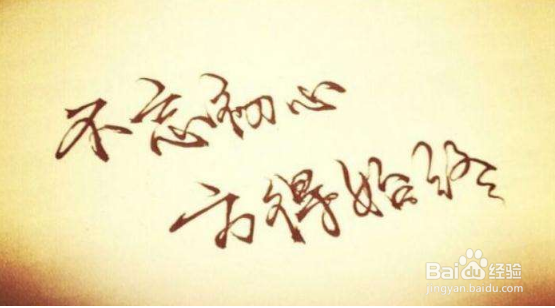 不忘初心
方得始终
Baidu 经验
jingyan.baidu.com